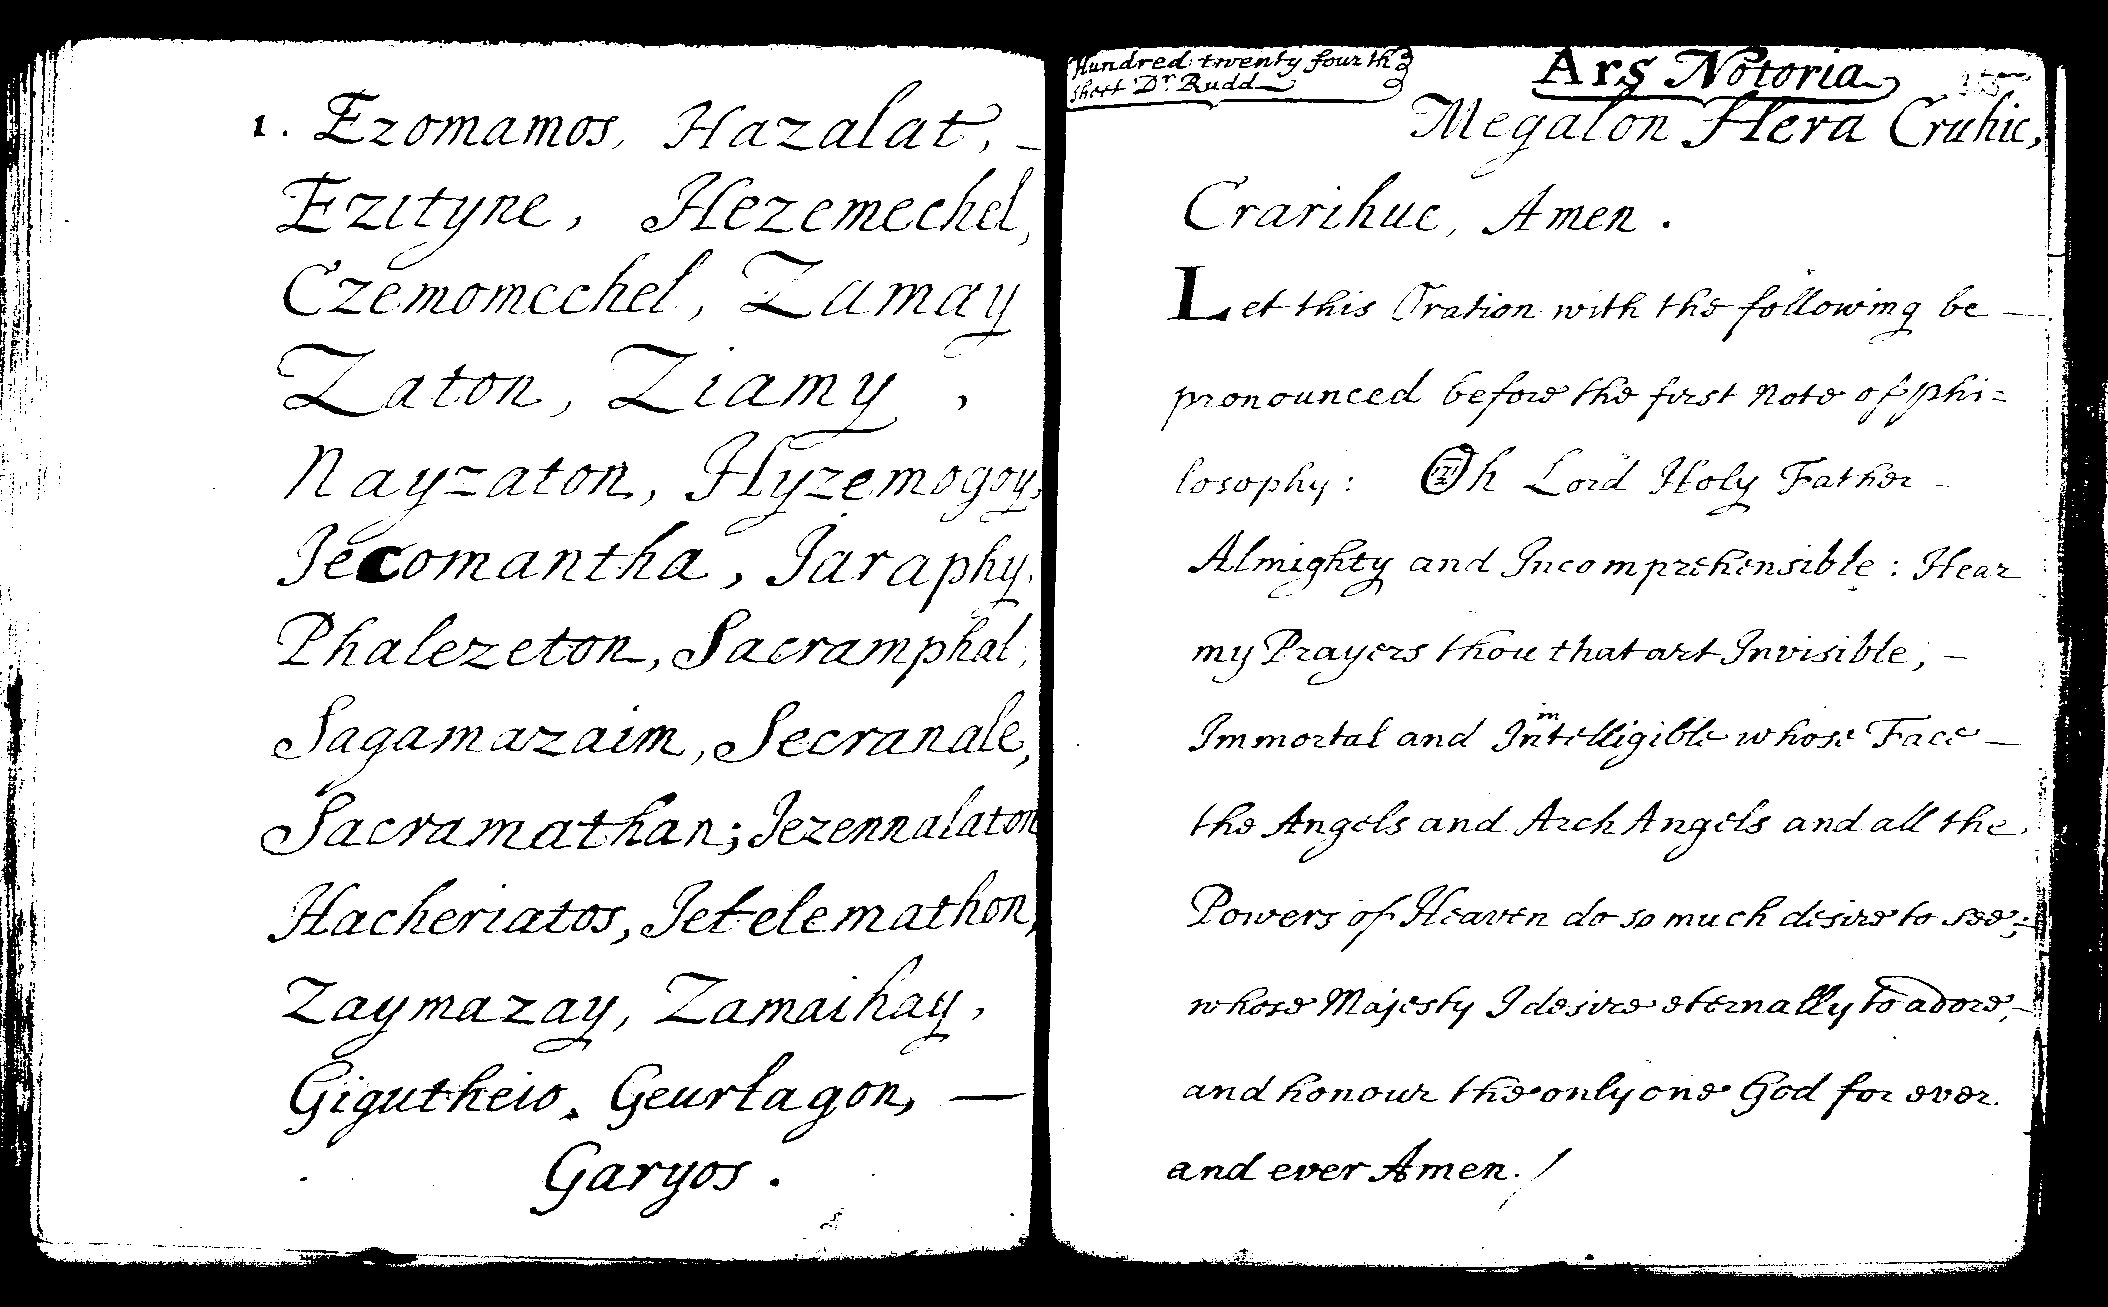 1. Ezomamos, Hazalat, -
Ezityne, Hezemechel,
Czemomechel, Zamay
Zaton, Ziamy,
Nayzaton, Hyzemogoy,
Jecomantha, Jaraphy,
Phalezeton, Sacramphal,
Sagamazaim, Secranale,
Sacramathan; Jezennalaton
Hacheriatos, Jetelemathon,
Zaymazay, Zamaihay,
Gigutheio, Geurlagon, —
Garyos.
Hundred twenty fourth
sheet Dr. Rudd
Ars Notoria
Megalon Hera Cruhic,
Crarihuc, Amen.
Let this Oration with the following be —
pronounced before the first Note of Phi=
losophy: Oh Lord Holy Father -
Almighty and Incomprehensible: Hear
my Prayers thou that art Invisible, -
Immortal and Intelligible whose Face —
the Angels and Arch Angels and all the
Powers of Heaven do so much desire to see;
whose Majesty I desire eternally to adore, -
and honour the only one God for ever
and ever Amen. /